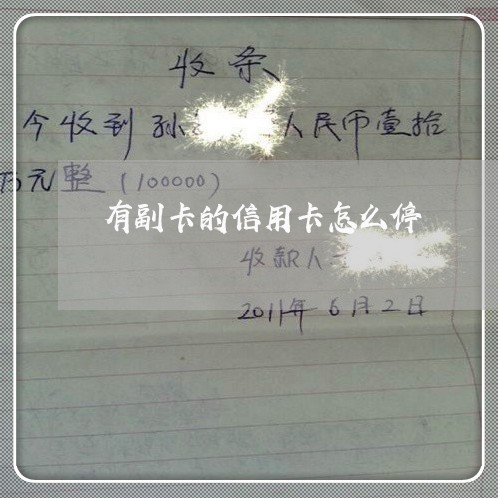 收条
今收到孙 人民币壹拾
万元整(100000)
有副卡的信用卡怎么停
收款人
2011年6月2日